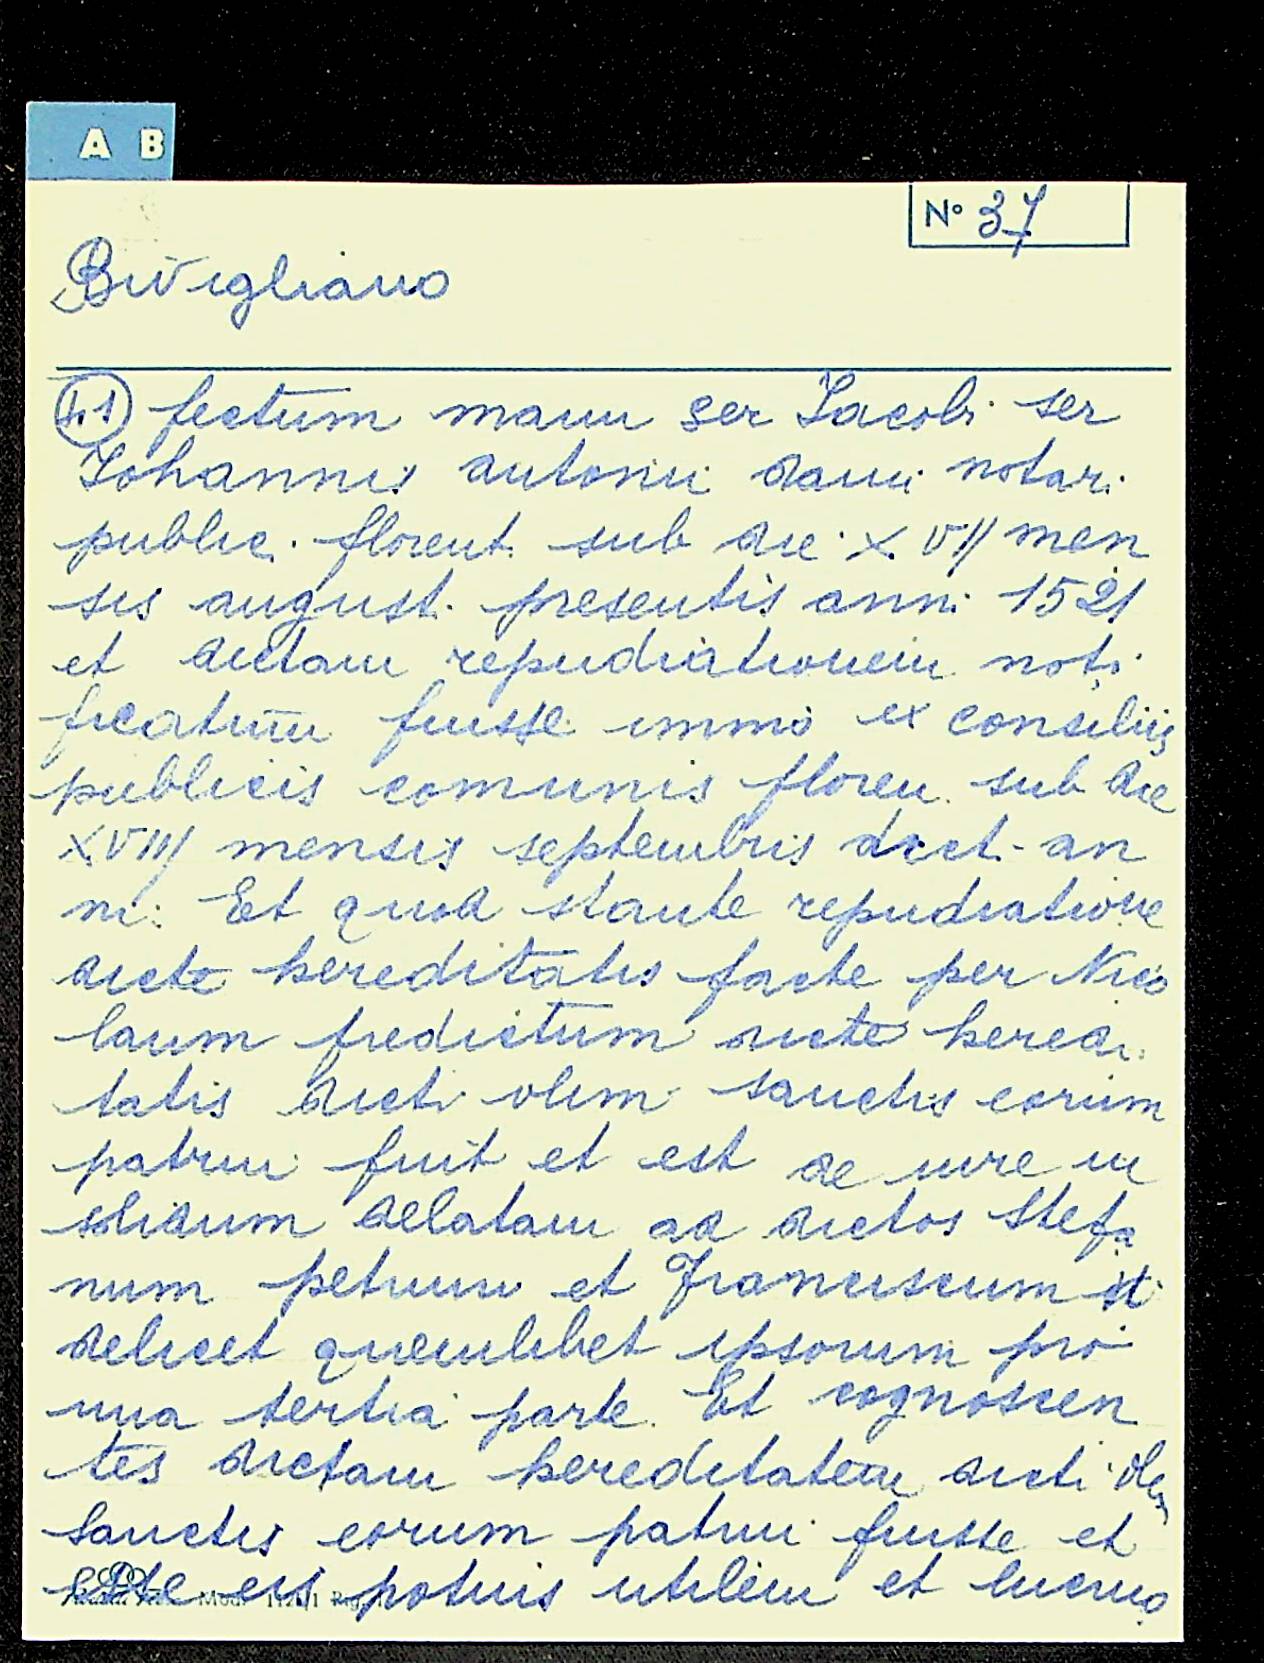 A B
N° 37
Bivigliano
fectum manu ser Iacobi ser
Iohannis antonii dami notari
public. florent. sub die XVII men
sis august. presentis anni 1521
et dictam repudiationem noti
ficatum fuisse immo ex consiliis
publicis comunis floren. sub die
XVIII mensis septembris dict. an
ni. Et quod stante repudiatione
dicte hereditatis facte per Nico
laum fredictum dicte heredi
tatis dicti olim sanctis eorum
patrui fuit et est de iure in
solidum delatam ad dictos Stefa
num petrum et Franciscum
delicet quemlibet ipsorum pro
una tertia parte. Et cognoscen
tes dictam hereditatem dicti olim
Sanctis eorum patrui fuisse et
esse eis potuis utilem et lucro